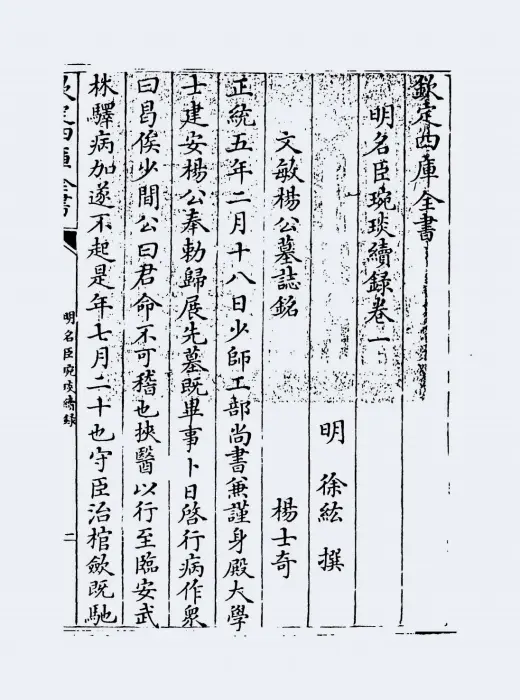 欽定四庫全書
明名臣琬琰續録卷一
明　徐紘　撰
文敏楊公墓誌銘　楊士奇
正統五年二月十八日少師工部尚書兼謹身殿大學
士建安楊公奉勅歸展先墓既畢事卜日啓行病作衆
曰曷俟少間公曰君命不可稽也挾醫以行至臨安武
株驛病加遂不起是年七月二十也守臣治棺斂既馳
欽定四庫全書
明名臣琬琰續録
二